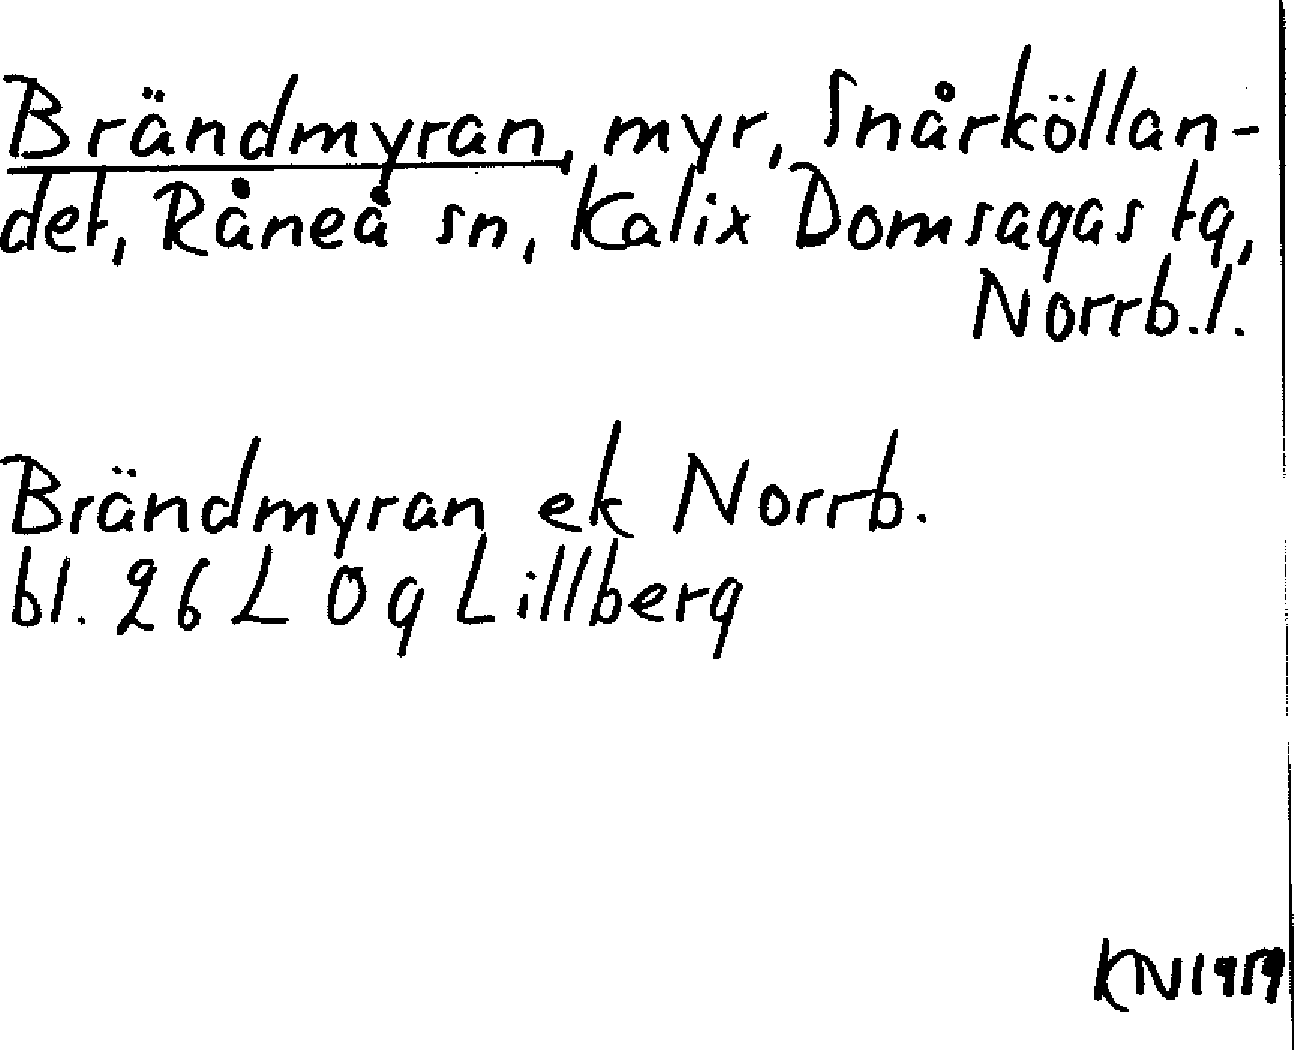 Brändmyran, myr, Snårköllan-
det, Råneå sn, Kalix Domsagas tg,
Norrb.l.
Brändmyran ek Norrb.
bl. 26 L Ög Lillberg
KN